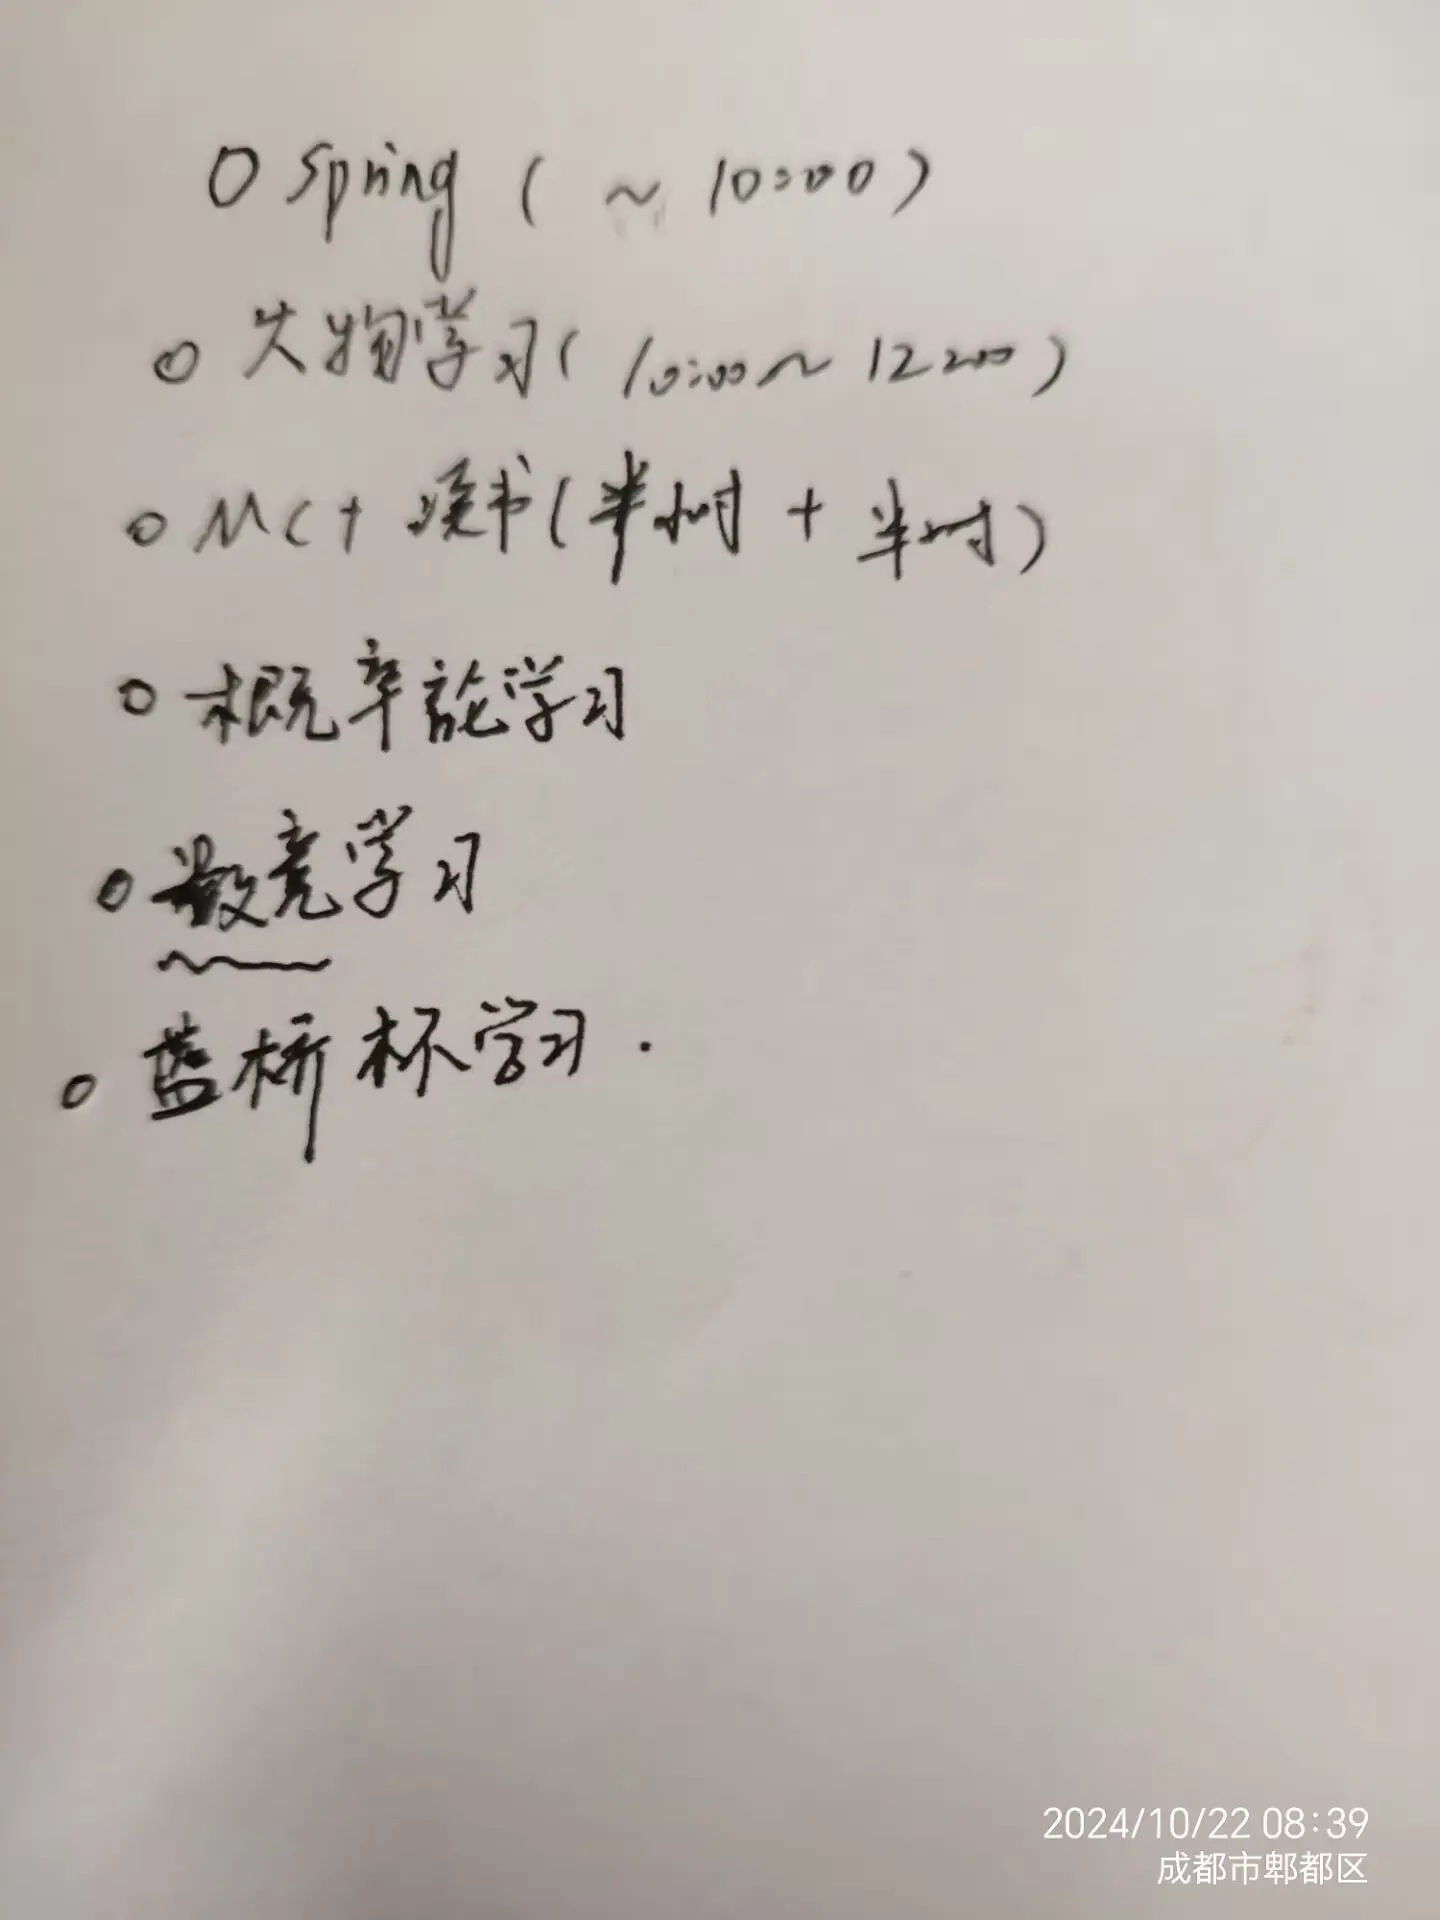 O Spring ( ~ 10:00 )
o 大物学习 ( 10:00 ~ 12:00 )
o MC + 读书 ( 半小时 + 半小时 )
o 概率论学习
o 数竞学习
o 蓝桥杯学习.
2024/10/22 08:39
成都市郫都区